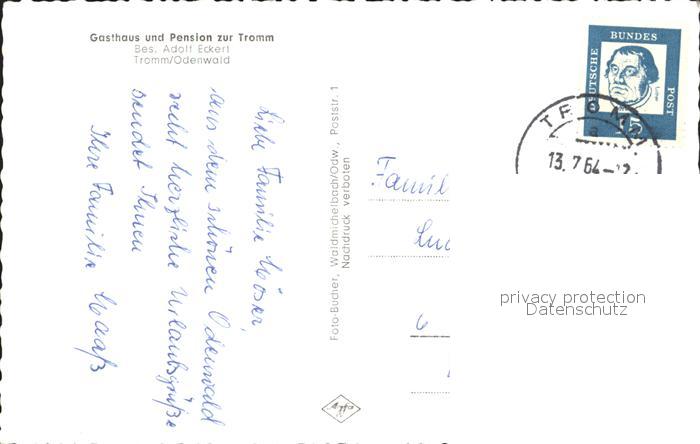 Gasthaus und Pension zur Tromm
Bes. Adolf Eckert
Tromm/Odenwald
Liebe Familie Höser,
aus dem schönen Odenwald
recht herzliche Urlaubsgrüße
sendet Ihnen
Ihre Familie Haaß
Foto-Bucher, Waldmichelbach/Odw., Poststr. 1
Nachdruck verboten
Agfa
DEUTSCHE
BUNDES
POST
Luther
15
TROMM
a
13.7.64-12
Famil
privacy protection
Datenschutz